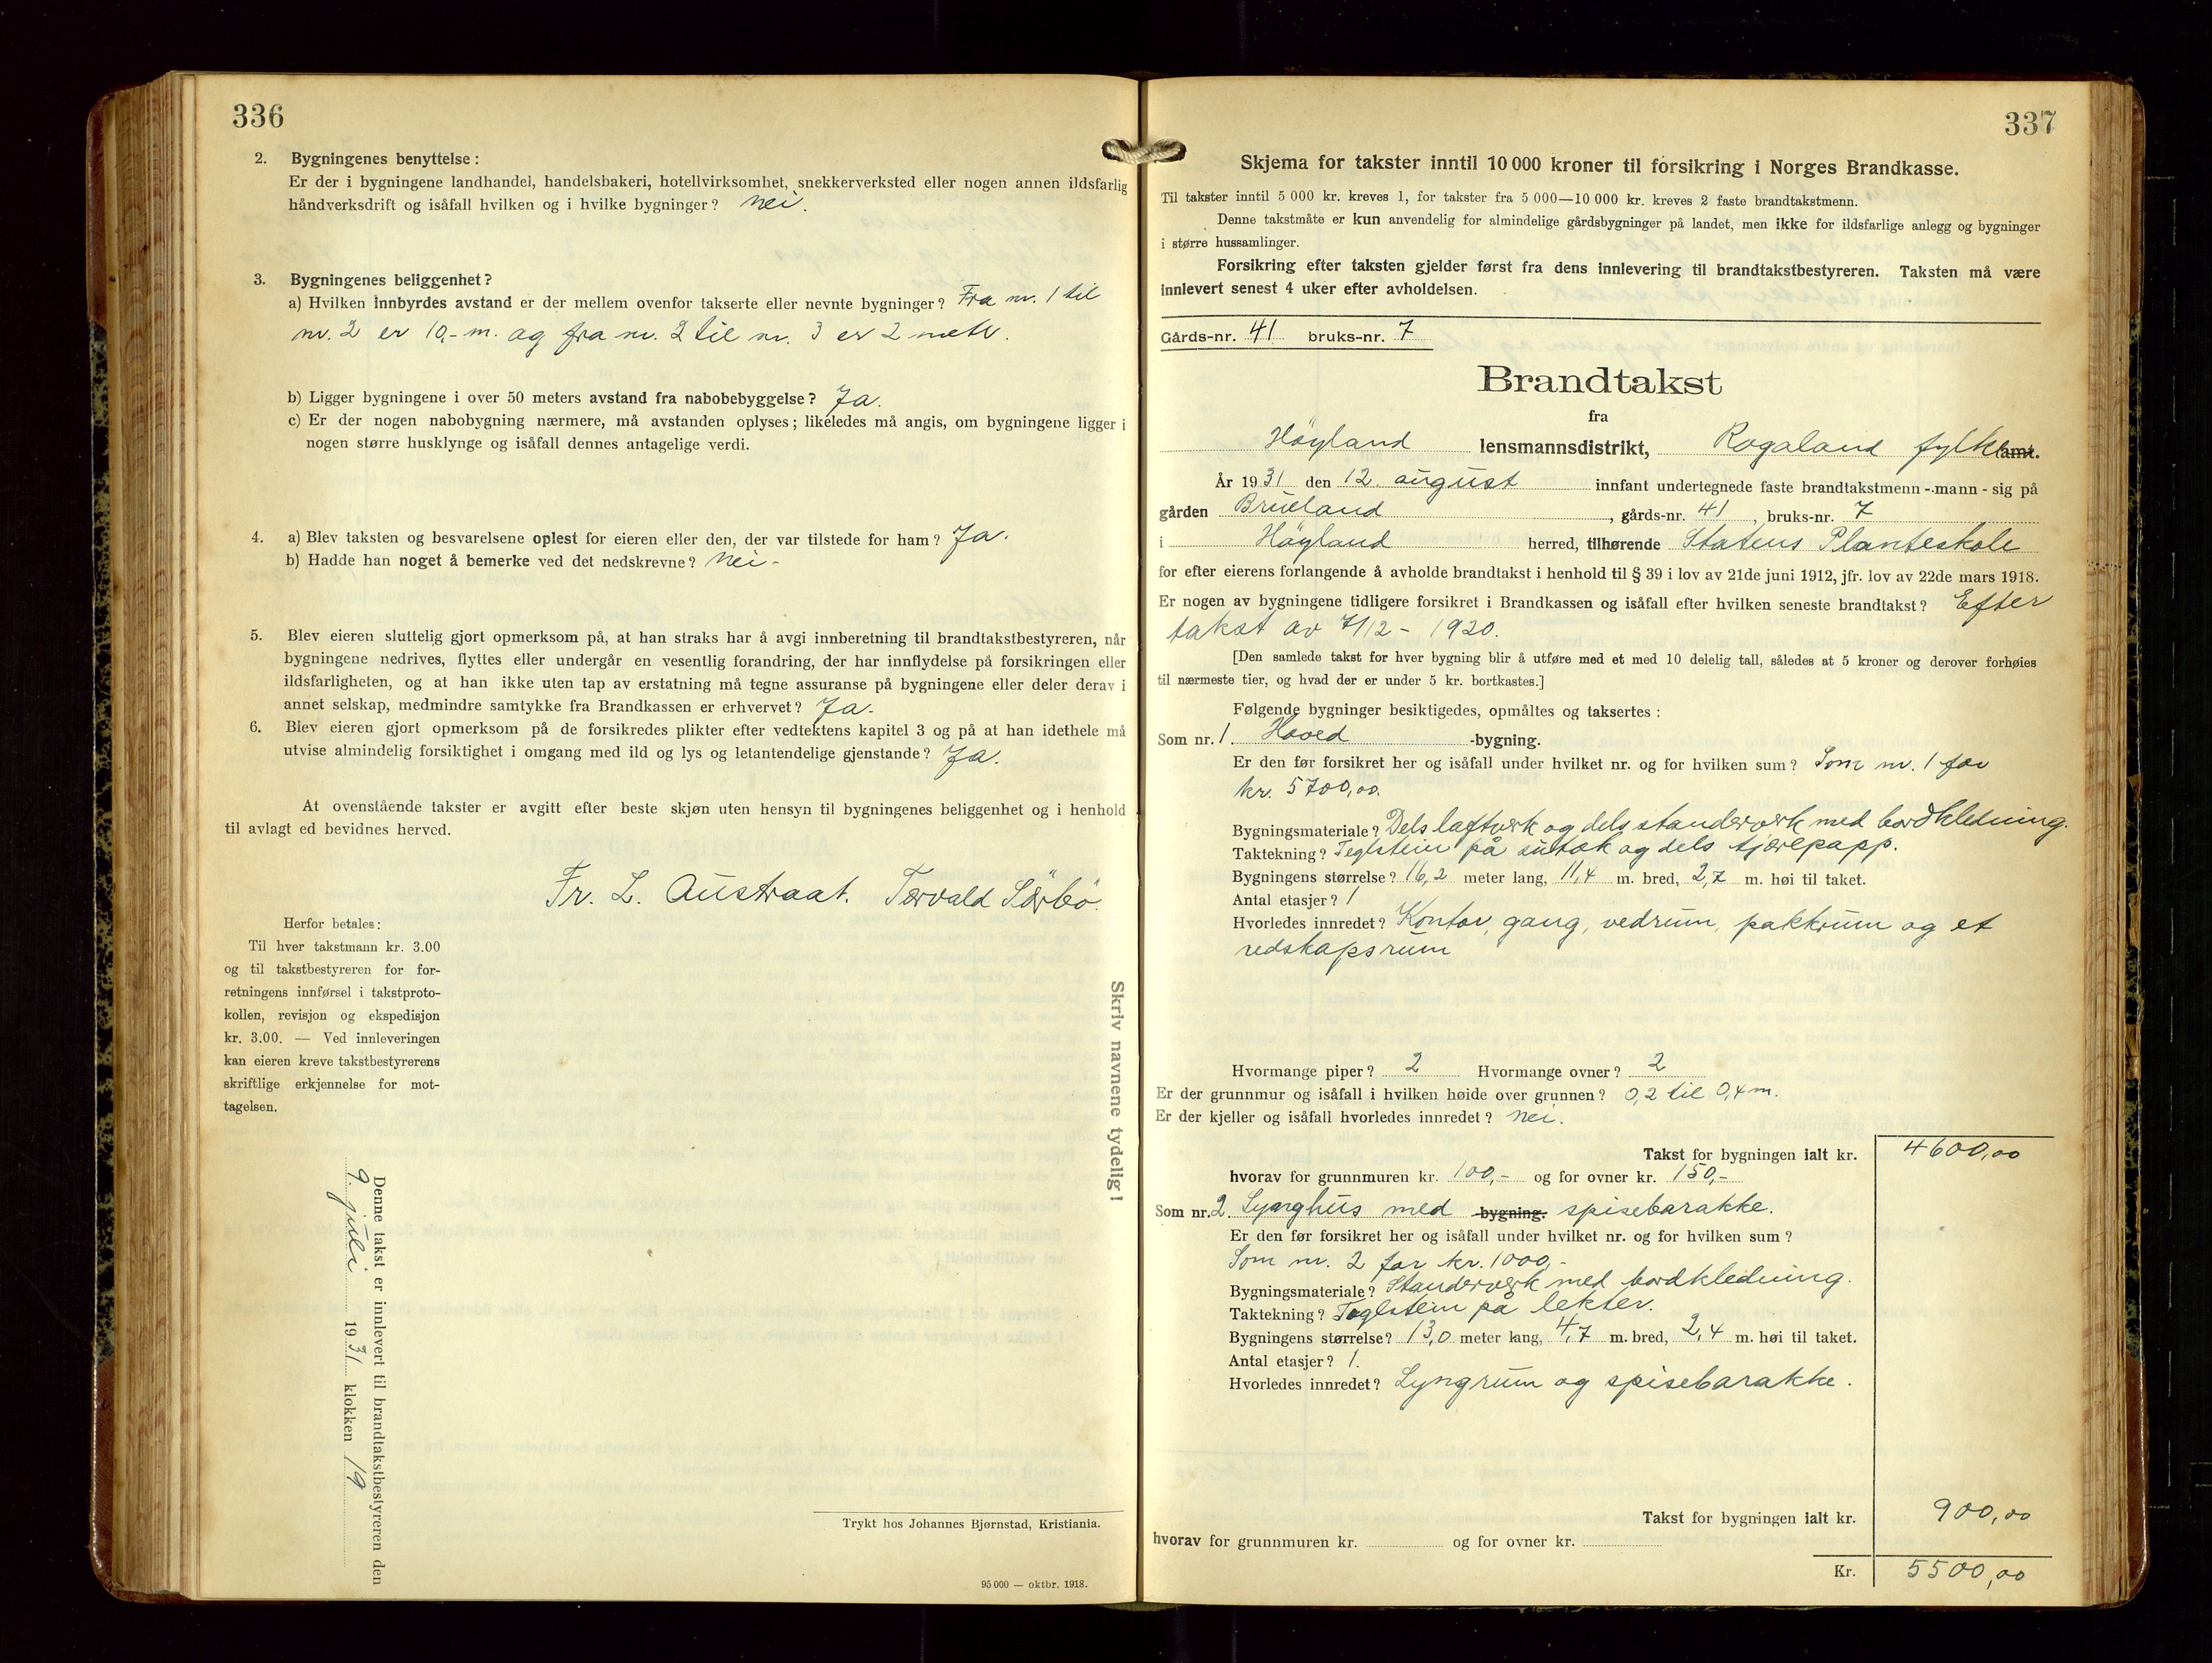 336
2. Bygningenes benyttelse :
Er der i bygningene landhandel, handelsbakeri, hotellvirksomhet, snekkerverksted eller nogen annen ildsfarlig
håndverksdrift og isåfall hvilken og i hvilke bygninger? Nei.
3. Bygningenes beliggenhet?
a) Hvilken innbyrdes avstand er der mellem ovenfor takserte eller nevnte bygninger? Fra nr. 1 til
nr. 2 er 10,- m. og fra nr. 2 til nr. 3 er 2 metr.
b) Ligger bygningene i over 50 meters avstand fra nabobebyggelse? Ja.
c) Er der nogen nabobygning nærmere, må avstanden oplyses; likeledes må angis, om bygningene ligger i
nogen større husklynge og isåfall dennes antagelige verdi.
4. a) Blev taksten og besvarelsene oplest for eieren eller den, der var tilstede for ham? Ja.
b) Hadde han noget å bemerke ved det nedskrevne? Nei-
5. Blev eieren sluttelig gjort opmerksom på, at han straks har å avgi innberetning til brandtakstbestyreren, når
bygningene nedrives, flyttes eller undergår en vesentlig forandring, der har innflydelse på forsikringen eller
ildsfarligheten, og at han ikke uten tap av erstatning må tegne assuranse på bygningene eller deler derav i
annet selskap, medmindre samtykke fra Brandkassen er erhvervet? Ja.
6. Blev eieren gjort opmerksom på de forsikredes plikter efter vedtektens kapitel 3 og på at han idethele må
utvise almindelig forsiktighet i omgang med ild og lys og letantendelige gjenstande? Ja.
At ovenstående takster er avgitt efter beste skjøn uten hensyn til bygningenes beliggenhet og i henhold
til avlagt ed bevidnes herved.
Fr. L. Austraat. Torvald Sørbø.
Herfor betales:
Til hver takstmann kr. 3.00
og til takstbestyreren for for-
retningens innførsel i takstproto-
kollen, revisjon og ekspedisjon
kr. 3.00. — Ved innleveringen
kan eieren kreve takstbestyrerens
skriftlige erkjennelse for mot-
tagelsen.
Denne takst er innlevert til brandtakstbestyreren den
9. juli 1931 klokken 19
Skriv navnene tydelig!
Trykt hos Johannes Bjørnstad, Kristiania.
95000 — oktbr. 1918.
337
Skjema for takster inntil 10 000 kroner til forsikring i Norges Brandkasse.
Til takster inntil 5 000 kr. kreves 1, for takster fra 5 000—10 000 kr. kreves 2 faste brandtakstmenn.
Denne takstmåte er kun anvendelig for almindelige gårdsbygninger på landet, men ikke for ildsfarlige anlegg og bygninger
i større hussamlinger.
Forsikring efter taksten gjelder først fra dens innlevering til brandtakstbestyreren. Taksten må være
innlevert senest 4 uker efter avholdelsen.
Gårds-nr. 41 bruks-nr. 7
Brandtakst
fra
Høyland lensmannsdistrikt, Rogaland fylke amt.
År 1931 den 12. august innfant undertegnede faste brandtakstmenn - mann - sig på
gården Brueland, gårds-nr. 41, bruks-nr. 7
i Høyland herred, tilhørende Statens Planteskole
for efter eierens forlangende å avholde brandtakst i henhold til § 39 i lov av 21de juni 1912, jfr. lov av 22de mars 1918.
Er nogen av bygningene tidligere forsikret i Brandkassen og isåfall efter hvilken seneste brandtakst? Efter
takst av 7/12 - 1920.
[Den samlede takst for hver bygning blir å utføre med et med 10 delelig tall, således at 5 kroner og derover forhøies
til nærmeste tier, og hvad der er under 5 kr. bortkastes.]
Følgende bygninger besiktigedes, opmåltes og taksertes :
Som nr. 1. Hoved -bygning.
Er den før forsikret her og isåfall under hvilket nr. og for hvilken sum? Som nr. 1 for
kr. 5700,00.
Bygningsmateriale? Dels laftverk og dels standerverk med bordkledning.
Taktekning? Teglstein på sutak og dels tjærepapp.
Bygningens størrelse? 16,2 meter lang, 11,4 m. bred, 2,7 m. høi til taket.
Antal etasjer? 1
Hvorledes innredet? Kontor, gang, vedrum, pakkrum og et
redskapsrum
Hvormange piper? 2 Hvormange ovner? 2
Er der grunnmur og isåfall i hvilken høide over grunnen? 0,2 til 0,4 m.
Er der kjeller og isåfall hvorledes innredet? Nei.
Takst for bygningen ialt kr. 4600,00
hvorav for grunnmuren kr. 100,- og for ovner kr. 150,-
Som nr. 2 Lynghus med bygning. spisebarakke.
Er den før forsikret her og isåfall under hvilket nr. og for hvilken sum?
Som nr. 2 for kr. 1000,-
Bygningsmateriale? Standerverk med bordkledning.
Taktekning? Teglstein på lekter.
Bygningens størrelse? 13,0 meter lang, 4,7 m. bred, 2,4 m. høi til taket.
Antal etasjer? 1.
Hvorledes innredet? Lyngrum og spisebarakke.
Takst for bygningen ialt kr. 900,00
hvorav for grunnmuren kr. og for ovner kr.
Kr. 5500,00